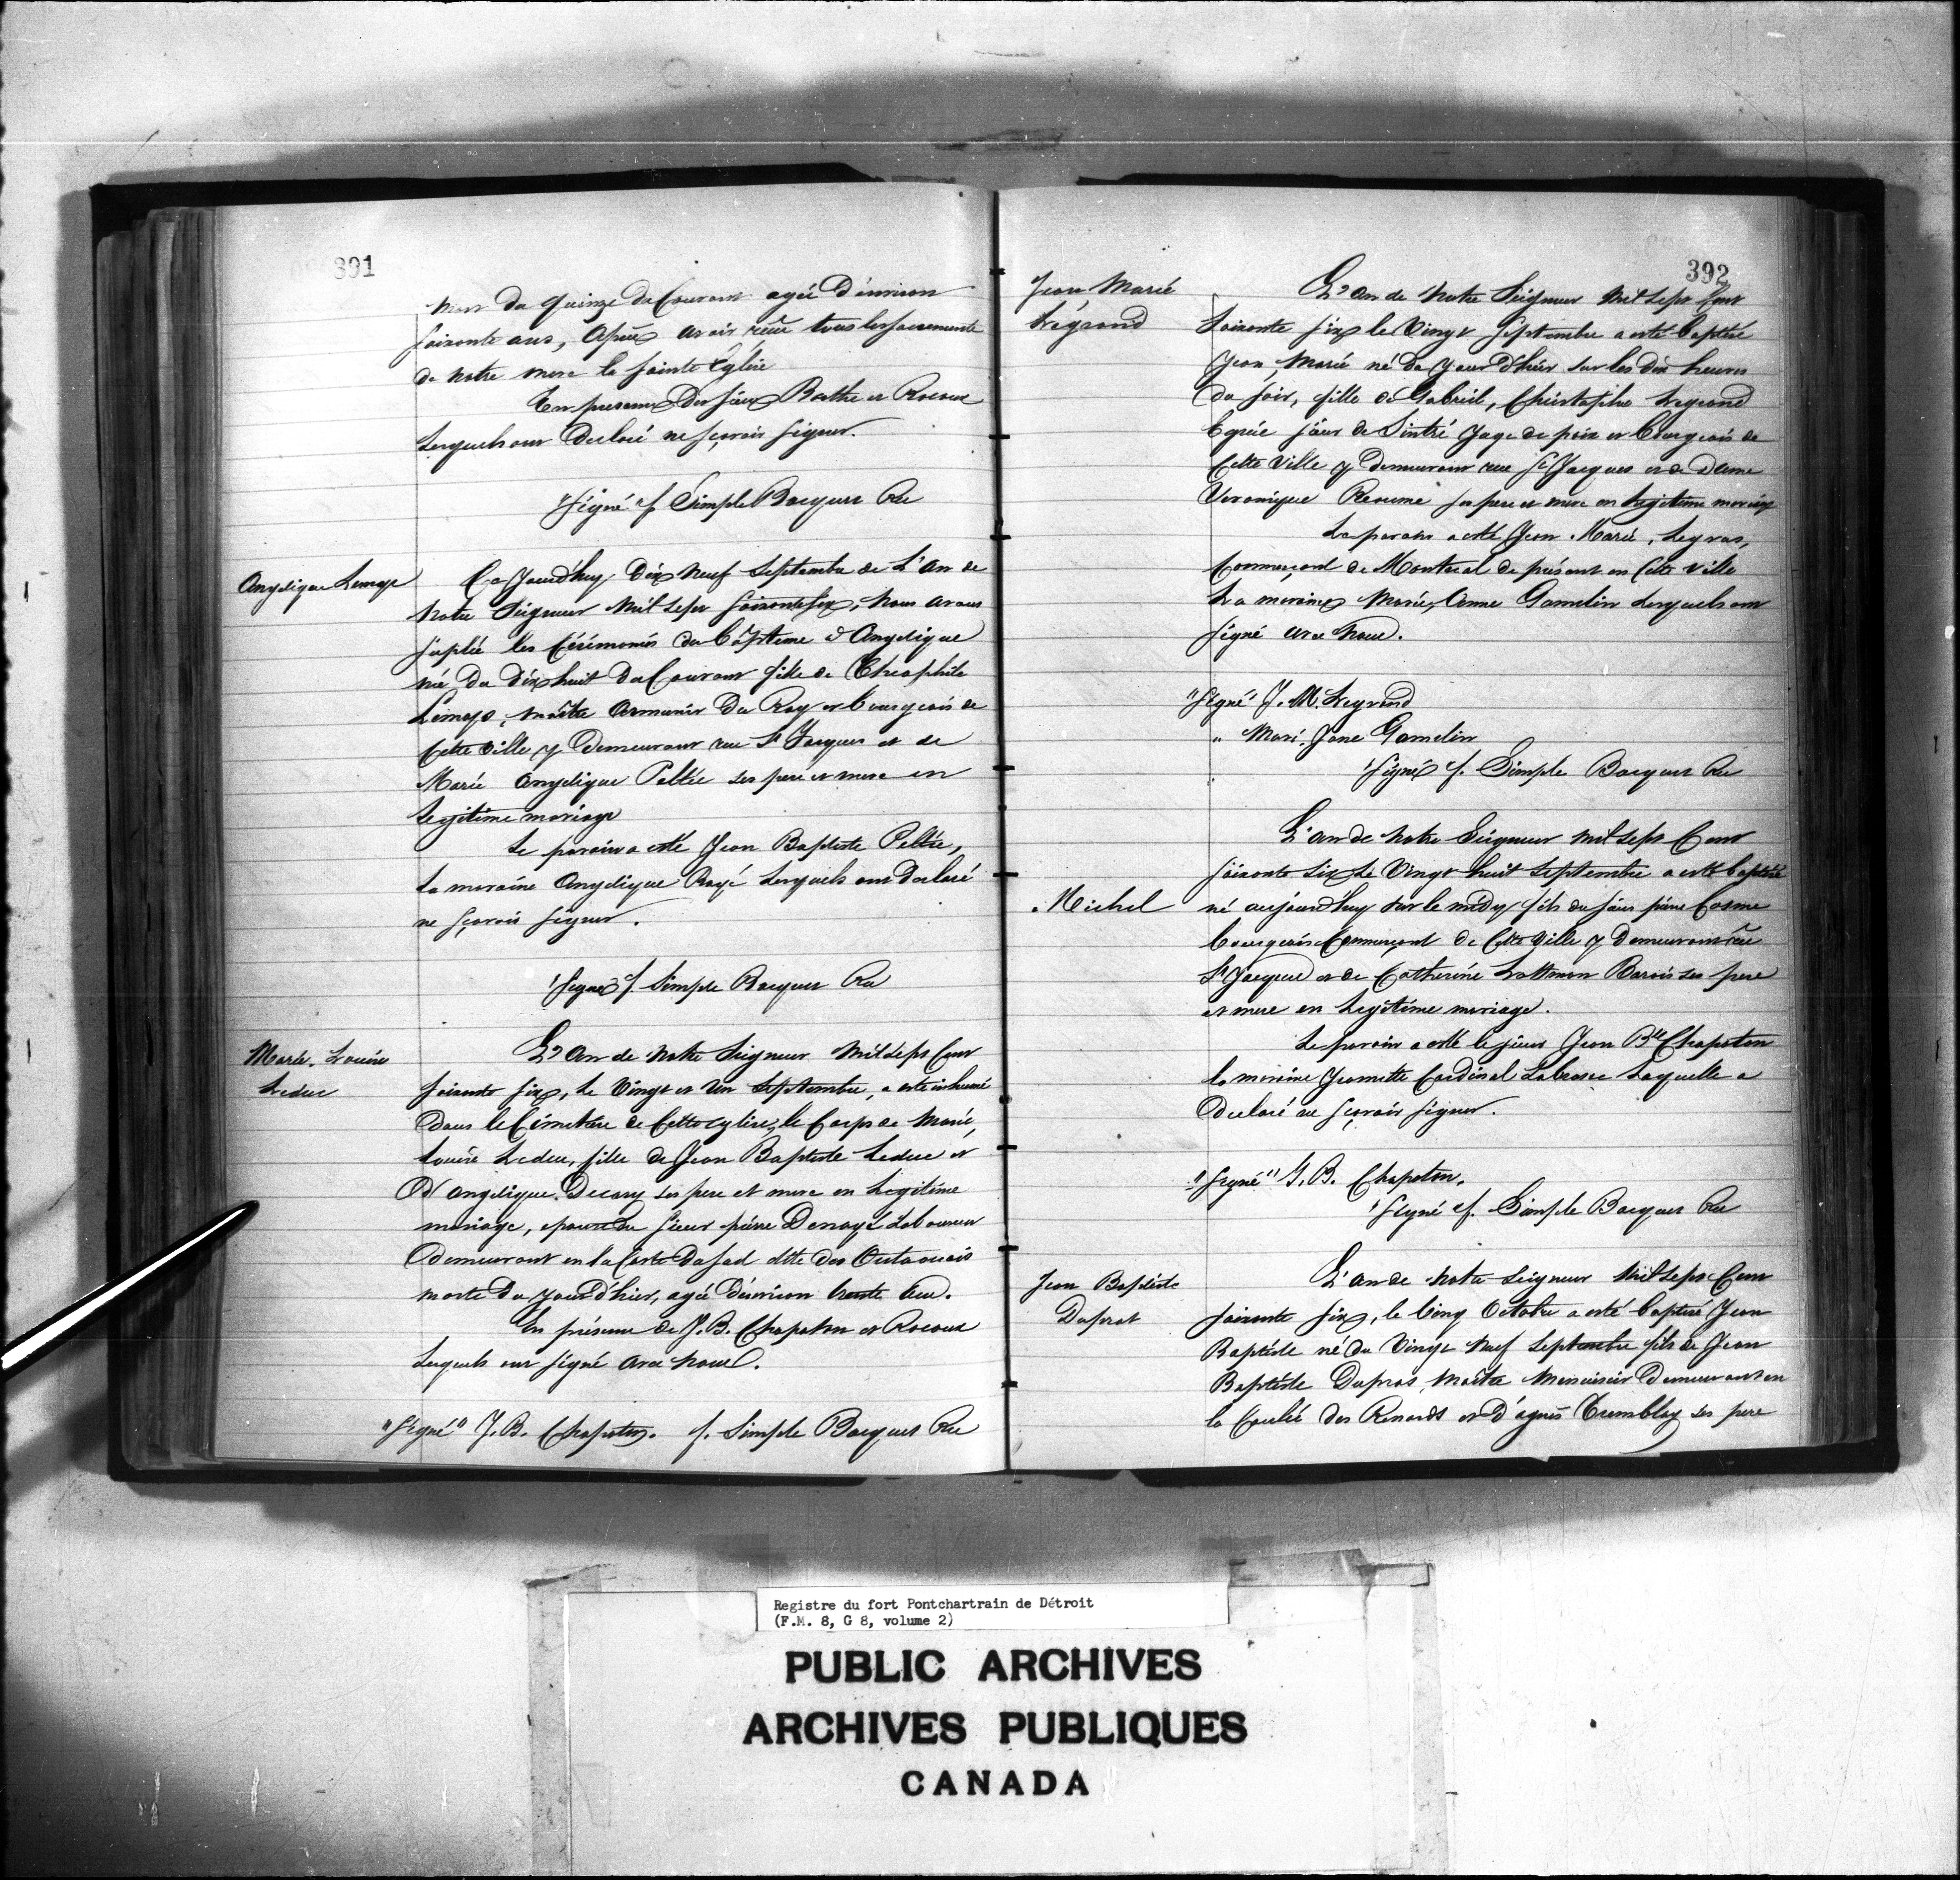 391
mort du quinze du Courant agée d'environ
soixante ans, Après avoir reçu tous les sacremente
de notre mere la sainte Eglise
En presence des sieurs Barthe et Rocoux
Lesquels ont declaré ne sçavoir signer.
"Signé" f. Simple Bocquet Rec
Angelique Lemay
Ce Jourd'huy Dix Neuf Septembre de L'An de
Notre Seigneur Mil sept soixante six, Nous avons
suplée les Cérémonies du Bâpteme d'Angelique
née du dix huit du Courant fille de Theophile
Lemays, maître Armurier du Roy et bourgeois de
Cette Ville y Demeurant rue St Jacques et de
Marie Angelique Peltée ses pere et mere en
Legitime mariage
Le parain a esté Jean Baptiste Peltée,
La maraine Angelique Lesquels ont declaré
ne sçavoir signer.
Signé f. Simple Bocquet Rec
Marie. Louise
Leduc
L'An de Notre Seigneur Mil sept Cent
soixante six, le Vingt et Un Septembre, a esté inhumé
Dans le Cimetiere de Cette eglise, le Corps de Marie,
Louise Leduc, fille de Jean Baptiste Leduc et
D'Angelique Decary ses pere et mere en Legitime
mariage, epouse du sieur pierre Laboureur
Demeurant en la Coste du sud ditte des Outaouais
morte du jourd'hier, agée d'environ trente
En présence de J. B. Chapoton et Rocoux
Lesquels ont signé avec nous.
"Signé" J. B. Chapoton. f. Simple Bocquet Rec
392
Jean Marie
Légrand
L'An de Notre Seigneur Mil Sept Cent
Soixante six le Vingt Septembre a esté baptisé
Jean Marie né du jour d'hier sur les dix heures
du soir, fille de Gabriel, Christophe Legrand
Sieur de Sintré Juge de paix et Bourgeois de
Cette Ville y Demeurant rue St Jacques et de Dame
Veronique Reaume ses pere et mere en Legitime mariage
Le parain a esté Jean Marie, Legras,
Commerçant de Montreal de présent en Cette Ville
La maraine Marie, Anne Gamelin Lesquels ont
signé avec Nous.
"Signé" J. M. Legrand
" Marie. Jane Gamelin
Signé f. Simple Bocquet Rec
L'An de Notre Seigneur Mil Sept Cent
soixante Six Le Vingt huit Septembre a esté baptisé
Michel
né aujourd'huy sur le midy fils du sieur pierre Cosme
bourgeois Commerçant de Cette Ville y Demeurant rue
St Jacques et de Catherine Lottman Barois ses pere
et mere en Legitime mariage.
Le parain a esté le sieur Jean Bte Chapoton
la maraine Jeannette Cardinal Laquelle a
Declaré ne sçavoir signer.
"Signé" J. B. Chapoton.
Signé f. Simple Bocquet Rec
Jean Baptiste
Duprat
L'An de Notre Seigneur Mil Sept Cent
soixante six, le Cinq Octobre a esté baptisé Jean
Baptiste né du Vingt Neuf Septembre fils de Jean
Baptiste Duprat, Maître Menuisier Demeurant en
la Coulée des Renards et d'agnes Tremblay ses pere
Registre du fort Pontchartrain de Détroit
(F.M. 8, G 8, volume 2)
PUBLIC ARCHIVES
ARCHIVES PUBLIQUES
CANADA